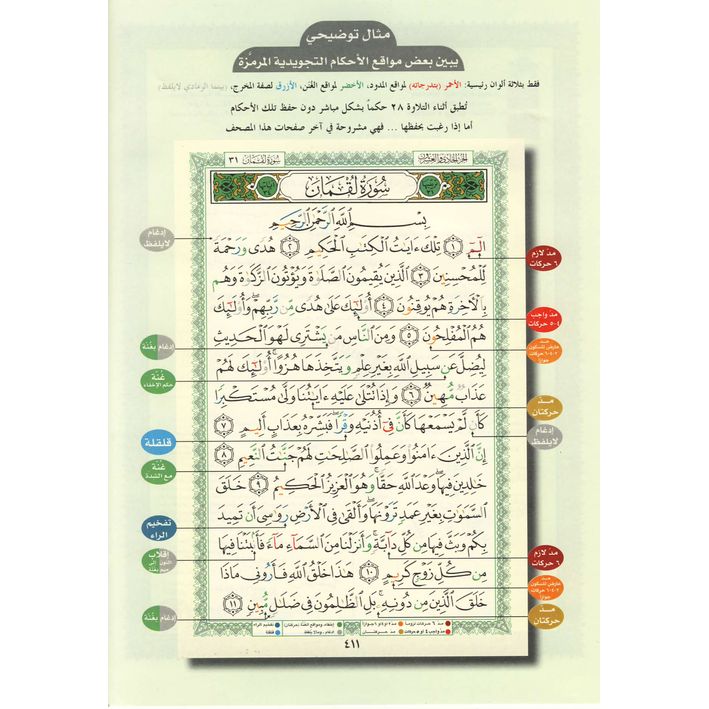 مثال توضيحي
يبين بعض مواقع الأحكام التجويدية المرمزة
فقط بثلاثة ألوان رئيسية: الأحمر (بتدرجاته) لمواقع المدود، الأخضر لمواقع الغنن، الأزرق لصفة المخرج، (بينما الرمادي لا يلفظ)
تُطبق أثناء التلاوة ٢٨ حكماً بشكل مباشر دون حفظ تلك الأحكام
أما إذا رغبت بحفظها ... فهي مشروحة في آخر صفحات هذا المصحف
سورة لقمان ٣١
الجزء الحادي والعشرون
سُورَةُ لُقْمَانَ
بِسْمِ اللَّهِ الرَّحْمَٰنِ الرَّحِيمِ
الٓمٓ ١ تِلْكَ ءَايَٰتُ الْكِتَٰبِ الْحَكِيمِ ٢ هُدًى وَرَحْمَةً
لِّلْمُحْسِنِينَ ٣ الَّذِينَ يُقِيمُونَ الصَّلَوٰةَ وَيُؤْتُونَ الزَّكَوٰةَ وَهُم
بِالْءَاخِرَةِ هُمْ يُوقِنُونَ ٤ أُوْلَٰٓئِكَ عَلَىٰ هُدًى مِّن رَّبِّهِمْ ۖ وَأُوْلَٰٓئِكَ
هُمُ الْمُفْلِحُونَ ٥ وَمِنَ النَّاسِ مَن يَشْتَرِي لَهْوَ الْحَدِيثِ
لِيُضِلَّ عَن سَبِيلِ اللَّهِ بِغَيْرِ عِلْمٍ وَيَتَّخِذَهَا هُزُوًا ۚ أُوْلَٰٓئِكَ لَهُمْ
عَذَابٌ مُّهِينٌ ٦ وَإِذَا تُتْلَىٰ عَلَيْهِ ءَايَٰتُنَا وَلَّىٰ مُسْتَكْبِرًا
كَأَن لَّمْ يَسْمَعْهَا كَأَنَّ فِيٓ أُذُنَيْهِ وَقْرًا ۖ فَبَشِّرْهُ بِعَذَابٍ أَلِيمٍ ٧
إِنَّ الَّذِينَ ءَامَنُوا وَعَمِلُوا الصَّٰلِحَٰتِ لَهُمْ جَنَّٰتُ النَّعِيمِ ٨
خَٰلِدِينَ فِيهَا ۖ وَعْدَ اللَّهِ حَقًّا ۚ وَهُوَ الْعَزِيزُ الْحَكِيمُ ٩ خَلَقَ
السَّمَٰوَٰتِ بِغَيْرِ عَمَدٍ تَرَوْنَهَا ۖ وَأَلْقَىٰ فِي الْأَرْضِ رَوَٰسِيَ أَن تَمِيدَ
بِكُمْ وَبَثَّ فِيهَا مِن كُلِّ دَآبَّةٍ ۚ وَأَنزَلْنَا مِنَ السَّمَآءِ مَآءً فَأَنۢبَتْنَا فِيهَا
مِن كُلِّ زَوْجٍ كَرِيمٍ ١٠ هَٰذَا خَلْقُ اللَّهِ فَأَرُونِي مَاذَا
خَلَقَ الَّذِينَ مِن دُونِهِ ۚ بَلِ الظَّٰلِمُونَ فِي ضَلَٰلٍ مُّبِينٍ ١١
٤١١
مدّ لازم
٦ حركات
مد واجب
٤-٥ حركات
مد
عارض للسكون
مـدّ
حركتان
إدغام
لا يلفظ
مدّ لازم
٦ حركات
مد
عارض للسكون
مـدّ
حركتان
إدغام
لا يلفظ
إدغام بغُنة
غُنة
حكم الإخفاء
قلقلة
غُنة
مع الشدة
تفخيم
الراء
إقلاب
النون إلى
ميم بغنة
إدغام بغنة